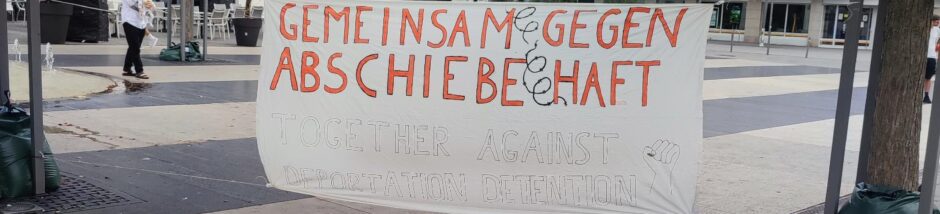 GEMEINSAM GEGEN
ABSCHIEBEHAFT
TOGETHER AGAINST
DEPORTATION DETENTION